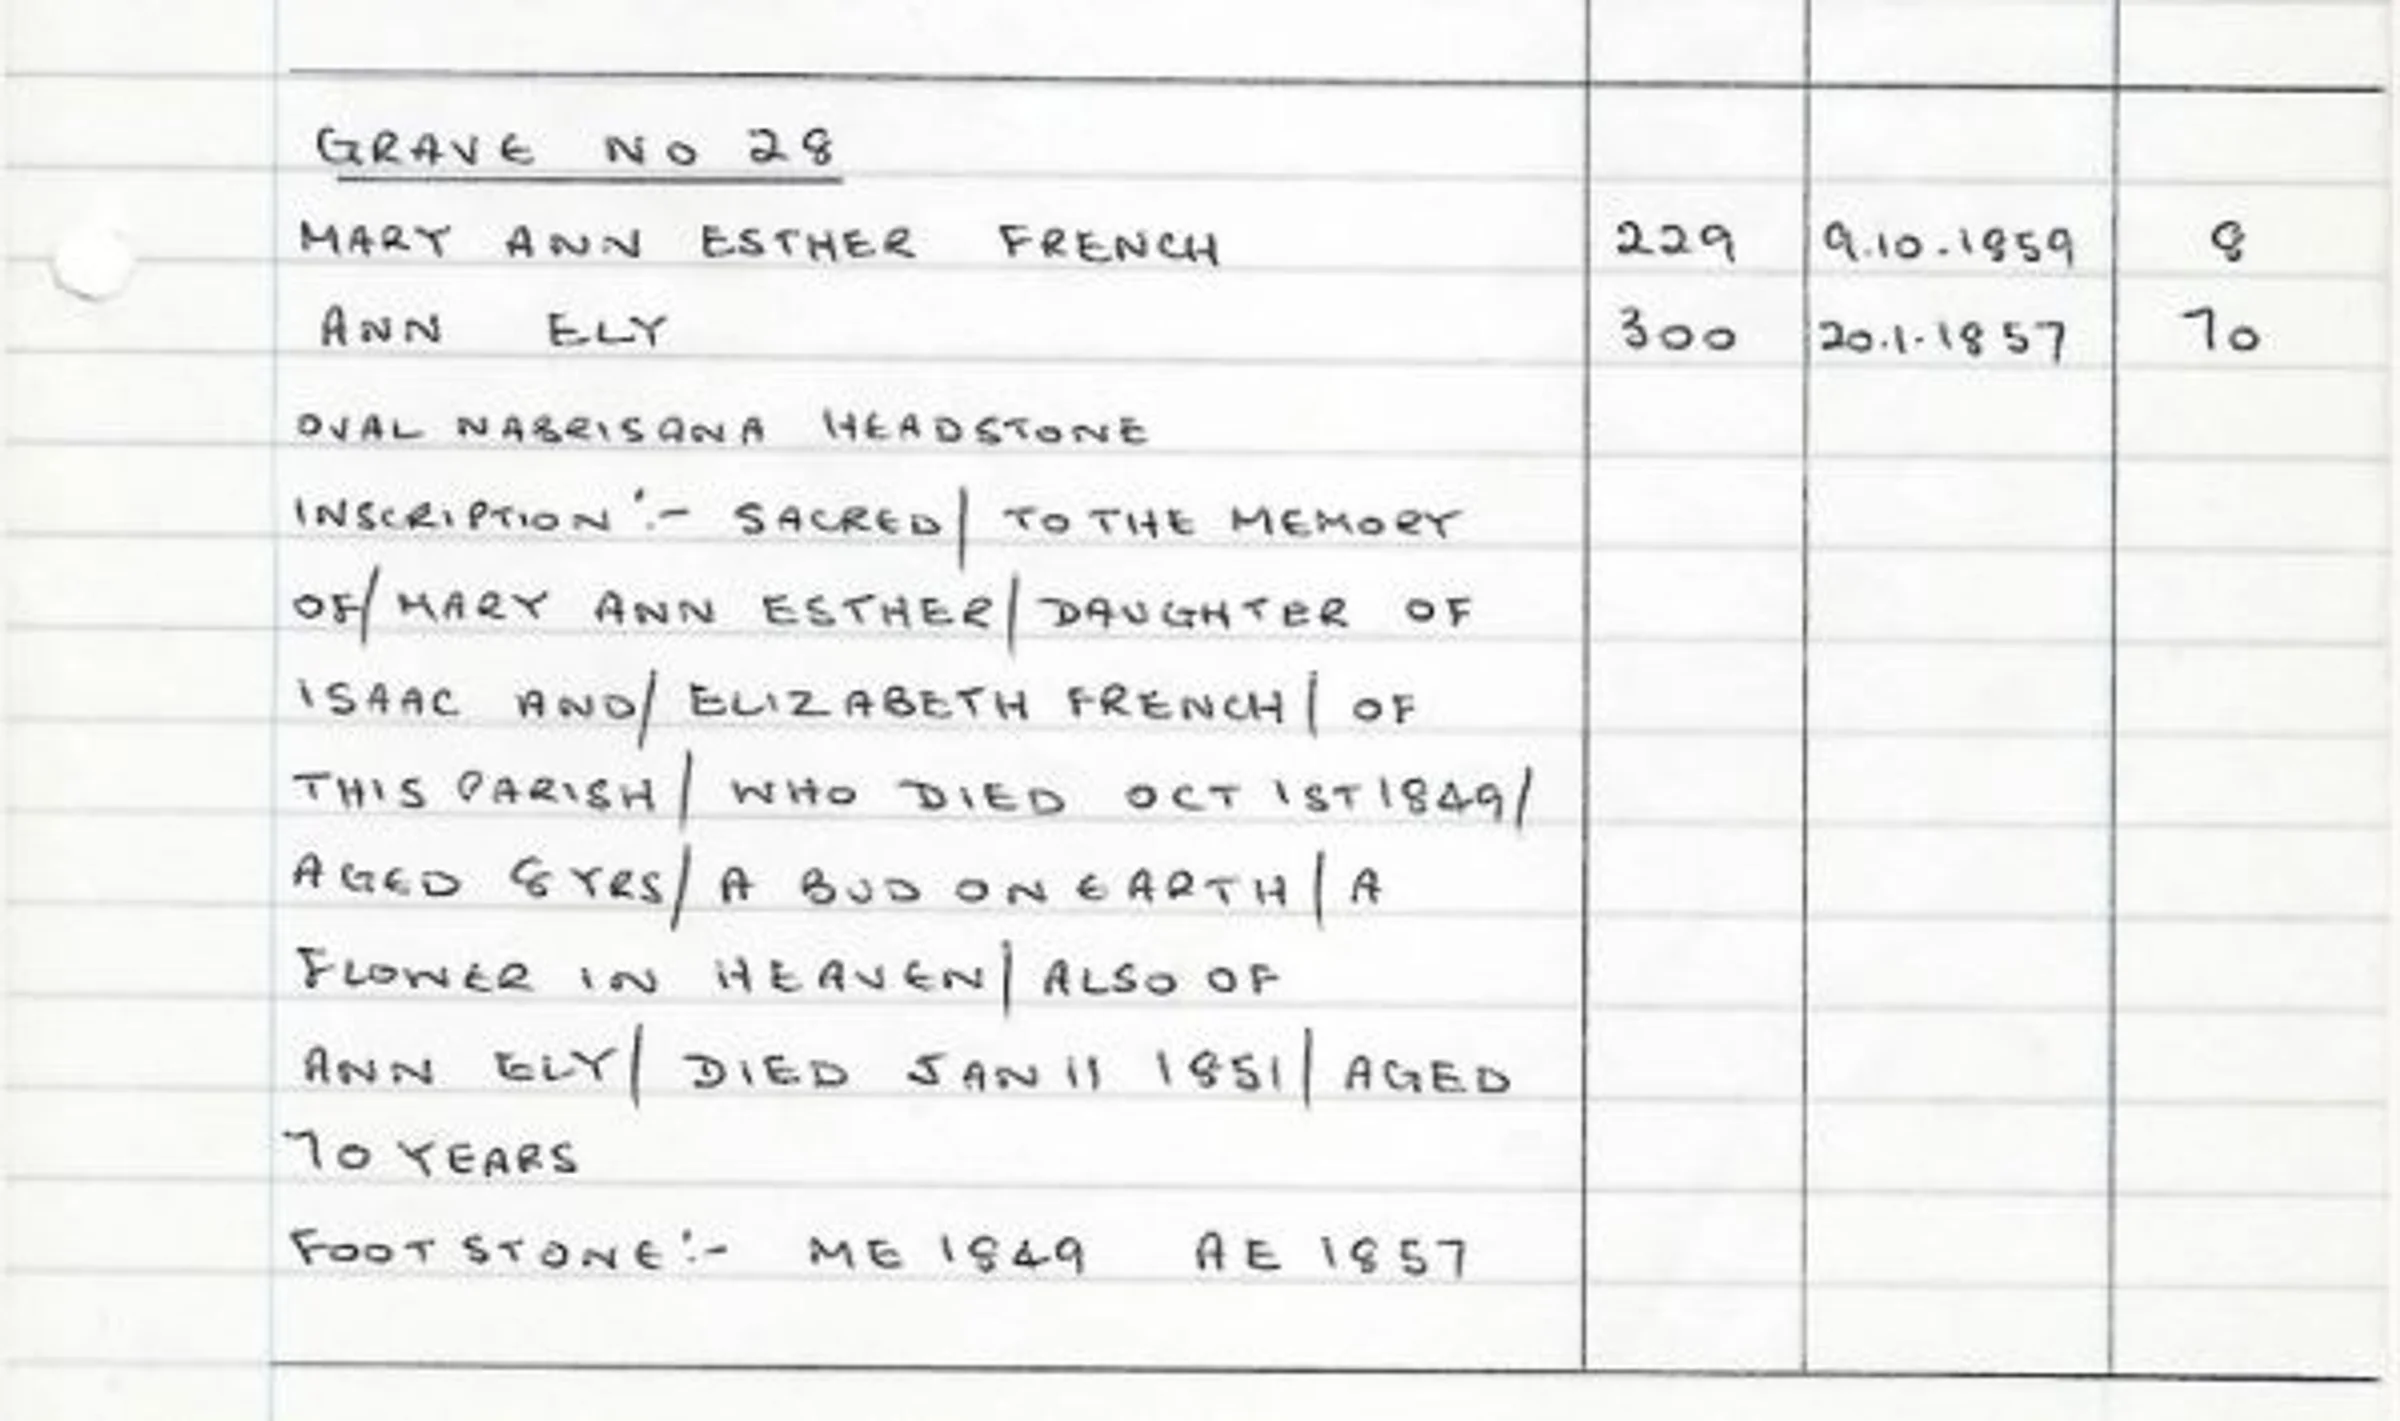 GRAVE NO 28
MARY ANN ESTHER FRENCH 229 9.10.1859 8
ANN ELY 300 20.1.1857 70
OVAL NABRISANA HEADSTONE
INSCRIPTION:- SACRED/ TO THE MEMORY
OF/ MARY ANN ESTHER/ DAUGHTER OF
ISAAC AND/ ELIZABETH FRENCH/ OF
THIS PARISH/ WHO DIED OCT 1ST 1849/
AGED 8 YRS/ A BUD ON EARTH/ A
FLOWER IN HEAVEN/ ALSO OF
ANN ELY/ DIED JAN 11 1851/ AGED
70 YEARS
FOOT STONE:- ME 1849 AE 1857